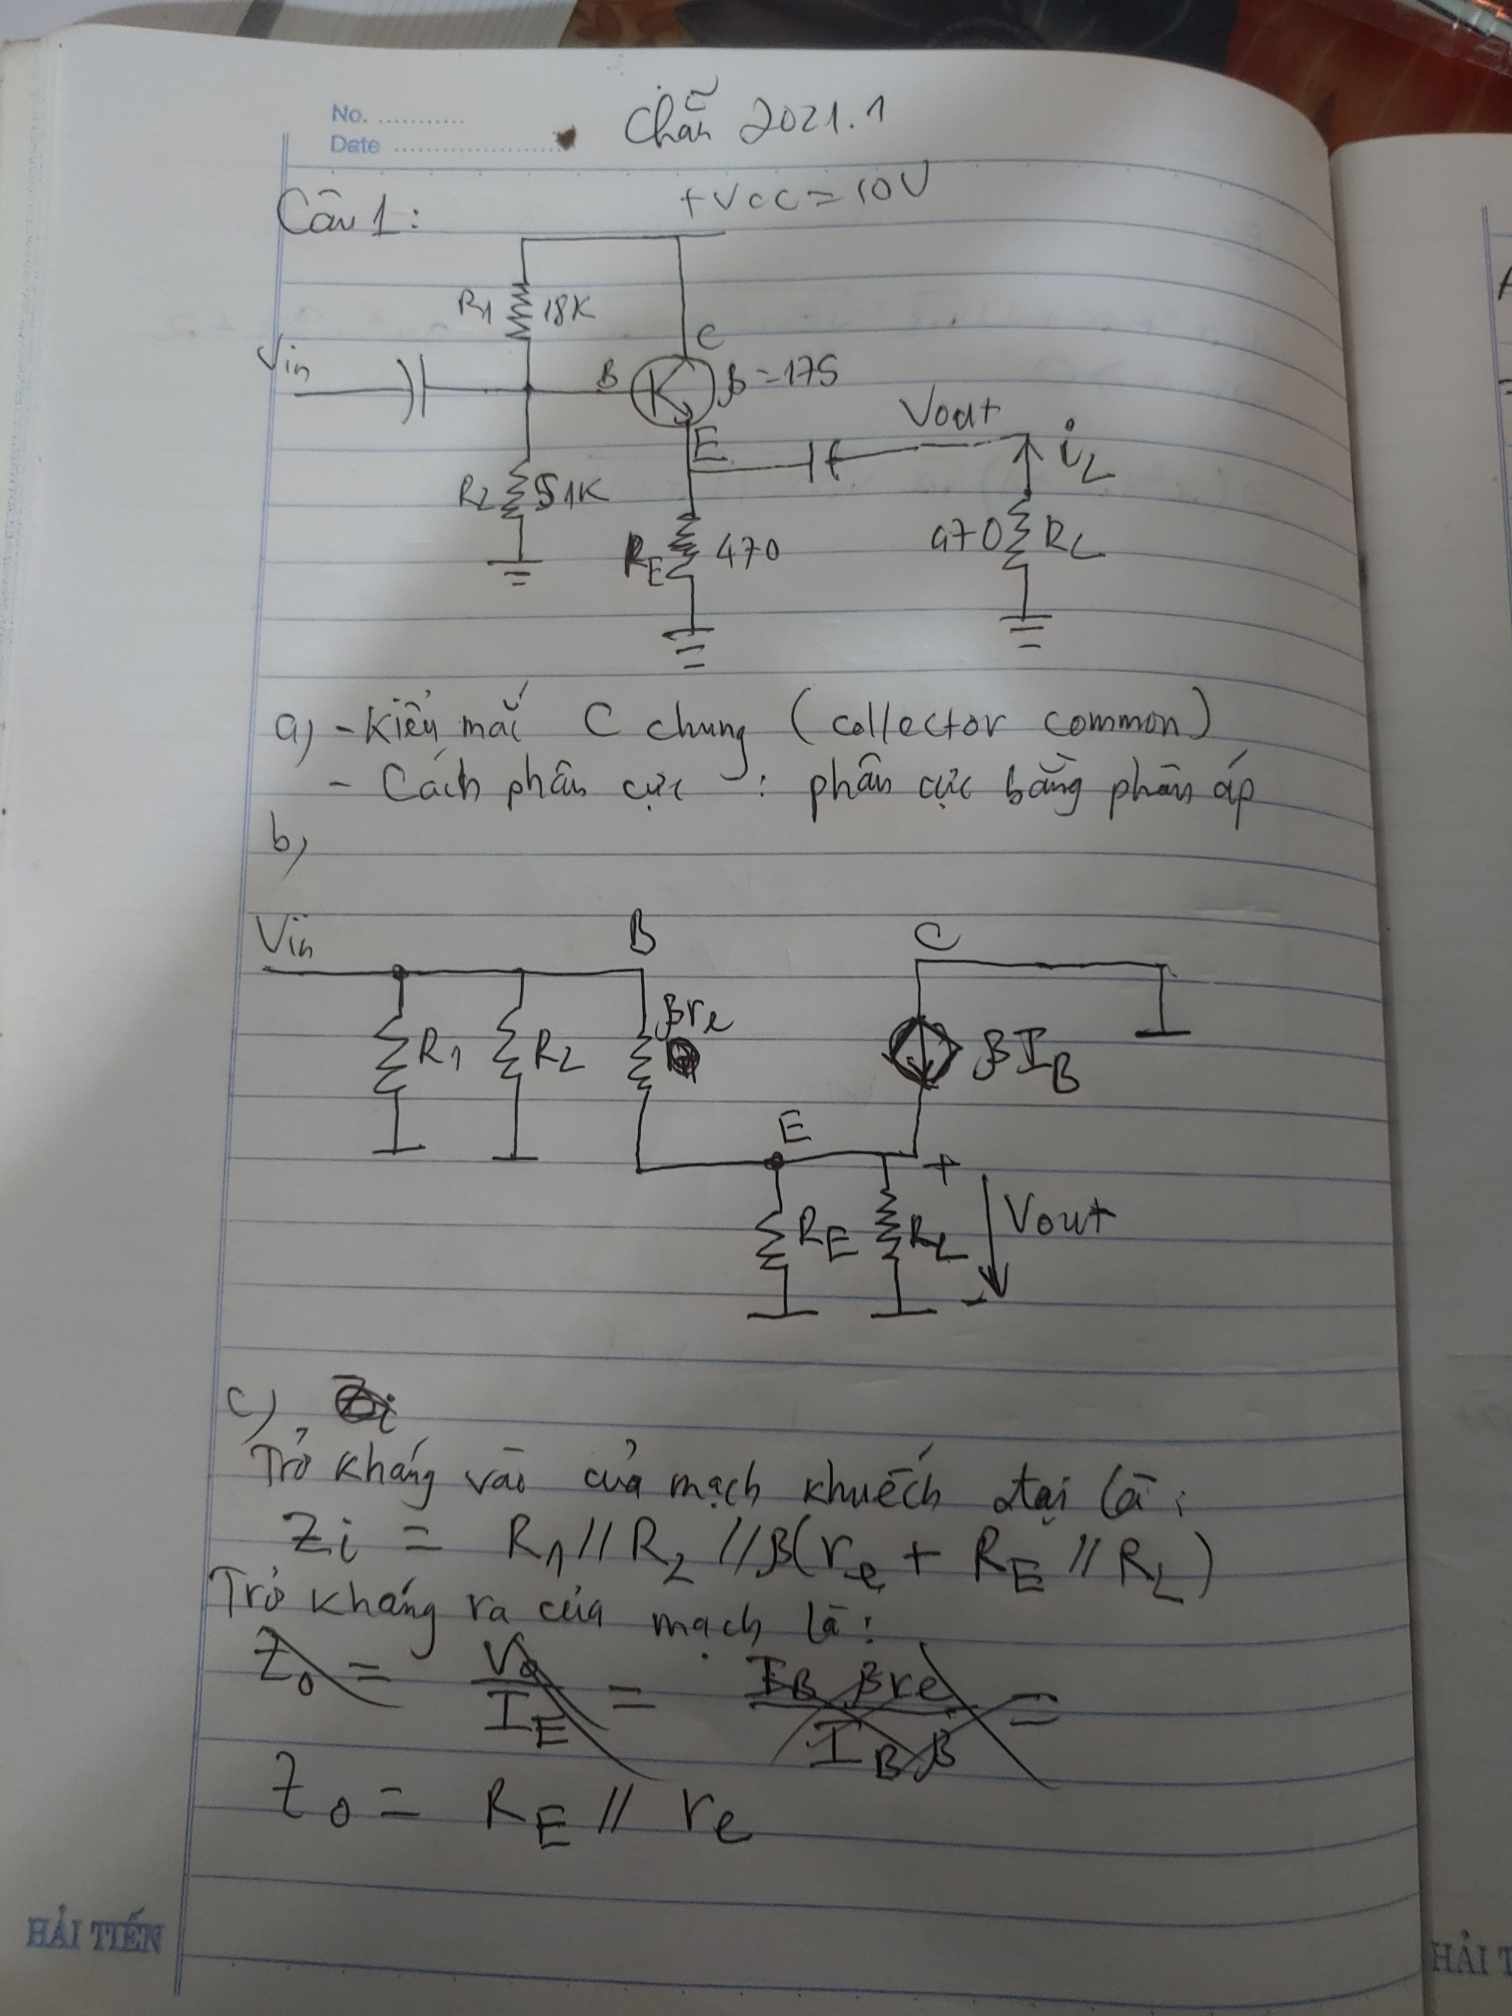 No. ...........
Date .....................
Chẵn 2021.1
Câu 1:
+Vcc = 10V
R1 18K
C
Vin
B
β = 175
Vout
E
iL
R2 51K
RE 470
470 RL
a) - Kiểu mắc C chung (collector common)
- Cách phân cực : phân cực bằng phân áp
b)
Vin
B
C
βre
R1
R2
βIB
E
+
RE
RL
Vout
-
c) Zi
Trở kháng vào của mạch khuếch đại là:
Zi = R1 // R2 // β(re + RE // RL)
Trở kháng ra của mạch là:
Zo = Vo / IE = IB βre / IB β =
Zo = RE // re
HẢI TIẾN
HẢI T